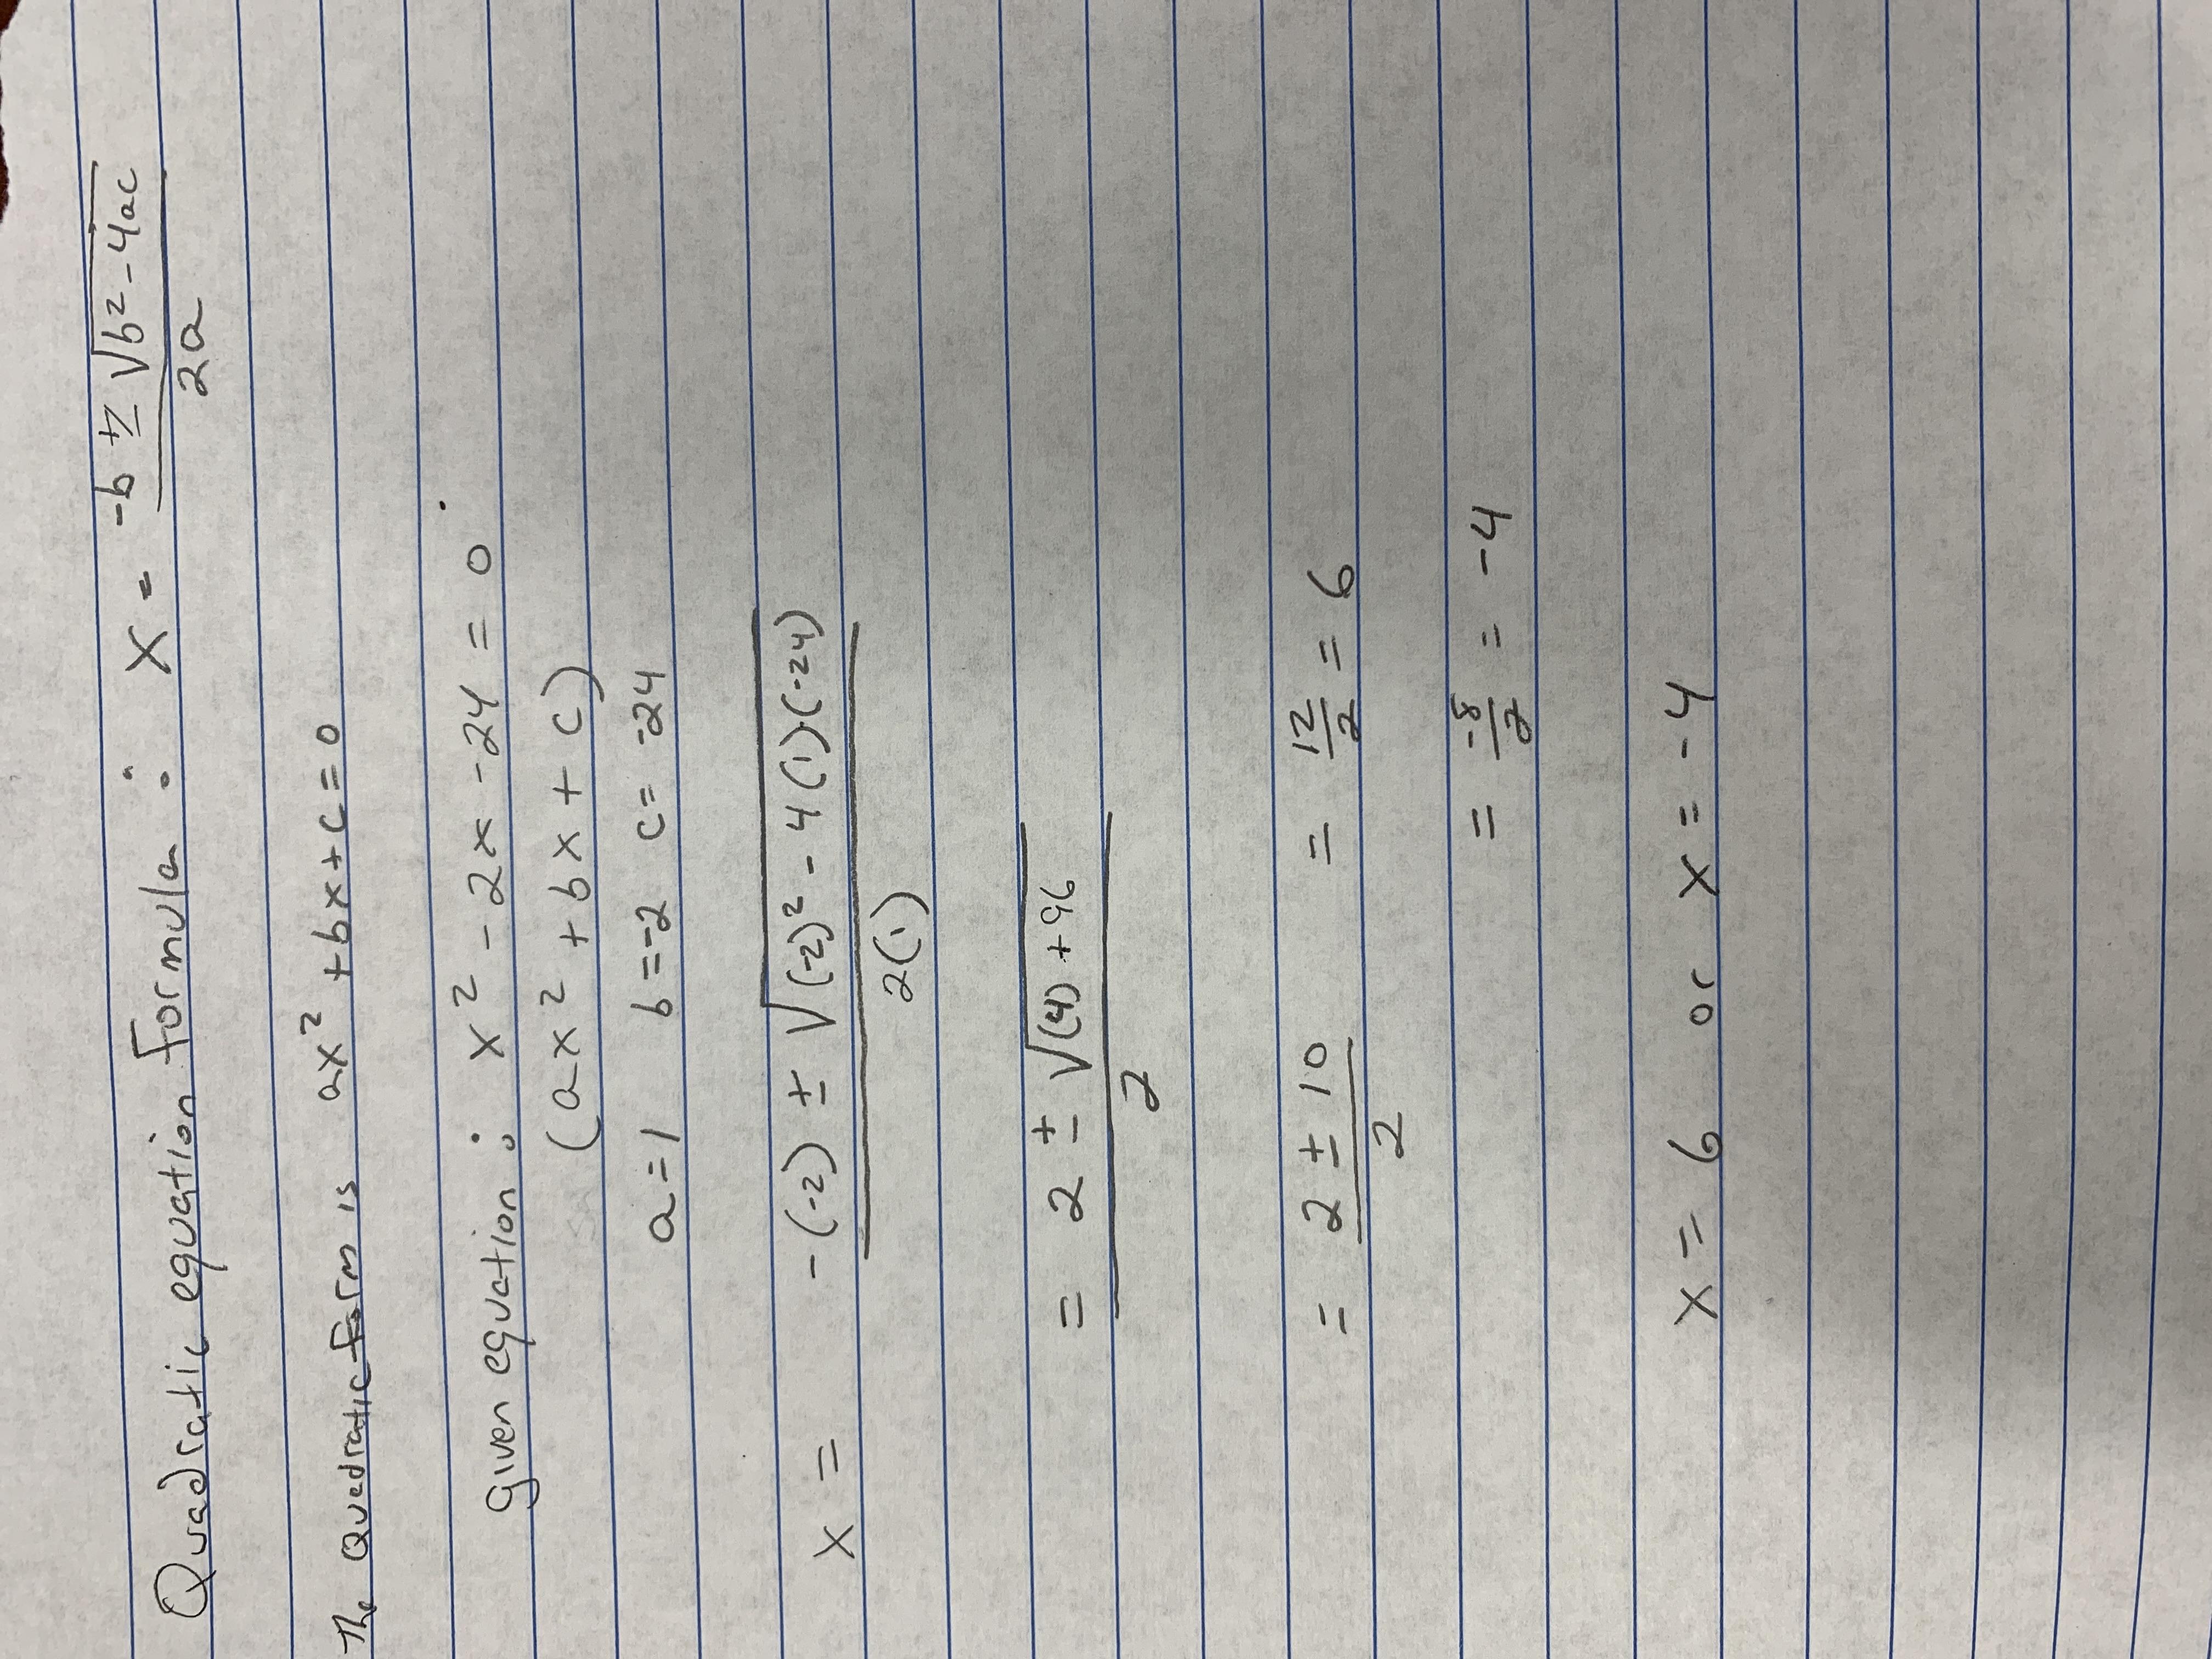 Quadratic equation Formula: x = -b ± √b² - 4ac / 2a
The Quadratic form is ax² + bx + c = 0
given equation: x² - 2x - 24 = 0
(ax² + bx + c)
a = 1 b = -2 c = -24
x = -(-2) ± √(-2)² - 4(1)·(-24) / 2(1)
= 2 ± √(4) + 96 / 2
= 2 ± 10 / 2 = 12/2 = 6
= -8/2 = -4
x = 6 or x = -4